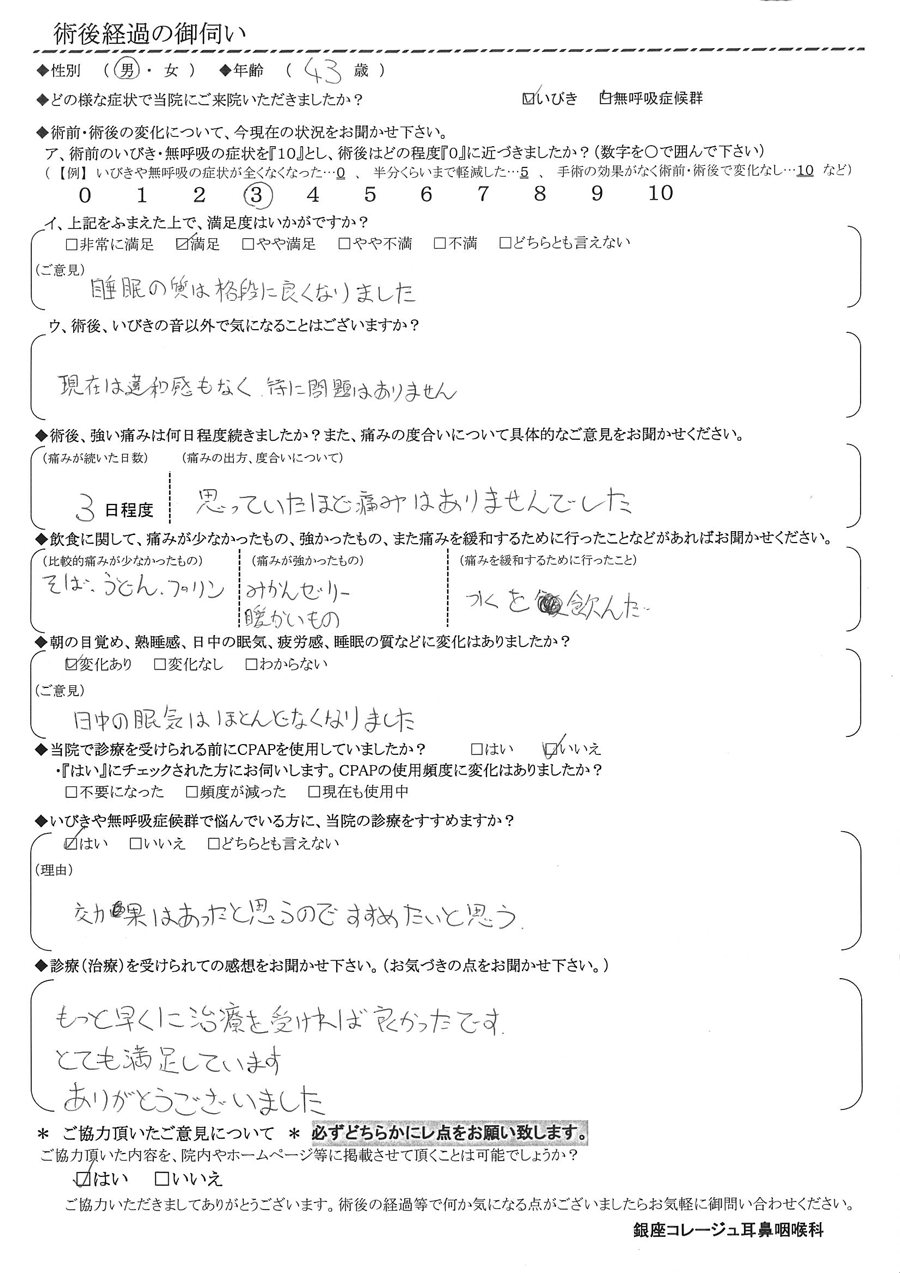 術後経過の御伺い
◆性別 (男・女) ◆年齢 (43歳)
◆どの様な症状で当院にご来院いただきましたか? ☑いびき ☑無呼吸症候群
◆術前・術後の変化について、今現在の状況をお聞かせ下さい。
ア、術前のいびき・無呼吸の症状を『10』とし、術後はどの程度『0』に近づきましたか?(数字を○で囲んで下さい)
(【例】いびきや無呼吸の症状が全くなくなった…0 、半分くらいまで軽減した…5 、手術の効果がなく術前・術後で変化なし…10 など)
0 1 2 3 4 5 6 7 8 9 10
イ、上記をふまえた上で、満足度はいかがですか?
□非常に満足 ☑満足 □やや満足 □やや不満 □不満 □どちらとも言えない
(ご意見)
睡眠の質は格段に良くなりました
ウ、術後、いびきの音以外で気になることはございますか?
現在は違和感もなく、特に問題はありません
◆術後、強い痛みは何日程度続きましたか?また、痛みの度合いについて具体的なご意見をお聞かせください。
(痛みが続いた日数) (痛みの出方、度合いについて)
3日程度 思っていたほど痛みはありませんでした
◆飲食に関して、痛みが少なかったもの、強かったもの、また痛みを緩和するために行ったことなどがあればお聞かせください。
(比較的痛みが少なかったもの) (痛みが強かったもの) (痛みを緩和するために行ったこと)
そば、うどん、プリン みかんゼリー 水を飲んだ
暖かいもの
◆朝の目覚め、熟睡感、日中の眠気、疲労感、睡眠の質などに変化はありましたか?
☑変化あり □変化なし □わからない
(ご意見)
日中の眠気はほとんどなくなりました
◆当院で診療を受けられる前にCPAPを使用していましたか? □はい ☑いいえ
・『はい』にチェックされた方にお伺いします。CPAPの使用頻度に変化はありましたか?
□不要になった □頻度が減った □現在も使用中
◆いびきや無呼吸症候群で悩んでいる方に、当院の診療をすすめますか?
☑はい □いいえ □どちらとも言えない
(理由)
効果はあったと思うのですすめたいと思う.
◆診療(治療)を受けられての感想をお聞かせ下さい。(お気づきの点をお聞かせ下さい。)
もっと早くに治療を受ければ良かったです.
とても満足しています
ありがとうございました
* ご協力頂いたご意見について * 必ずどちらかにレ点をお願い致します。
ご協力頂いた内容を、院内やホームページ等に掲載させて頂くことは可能でしょうか?
☑はい □いいえ
ご協力いただきましてありがとうございます。術後の経過等で何か気になる点がございましたらお気軽に御問い合わせください。
銀座コレージュ耳鼻咽喉科